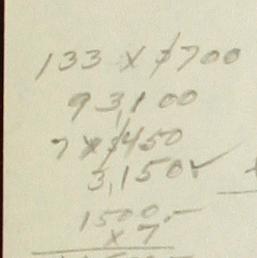 133 X $700
93,100
7 X $450
3,150✓
1500.-
X 7